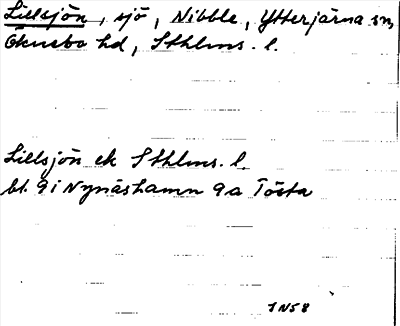 Lillsjön, sjö, Nibble, Ytterjärna sn,
Öknebo hd, Sthlms. l.
Lillsjön ek Sthlms. l.
bl. 9 i Nynäshamn 9a Tösta
1N58